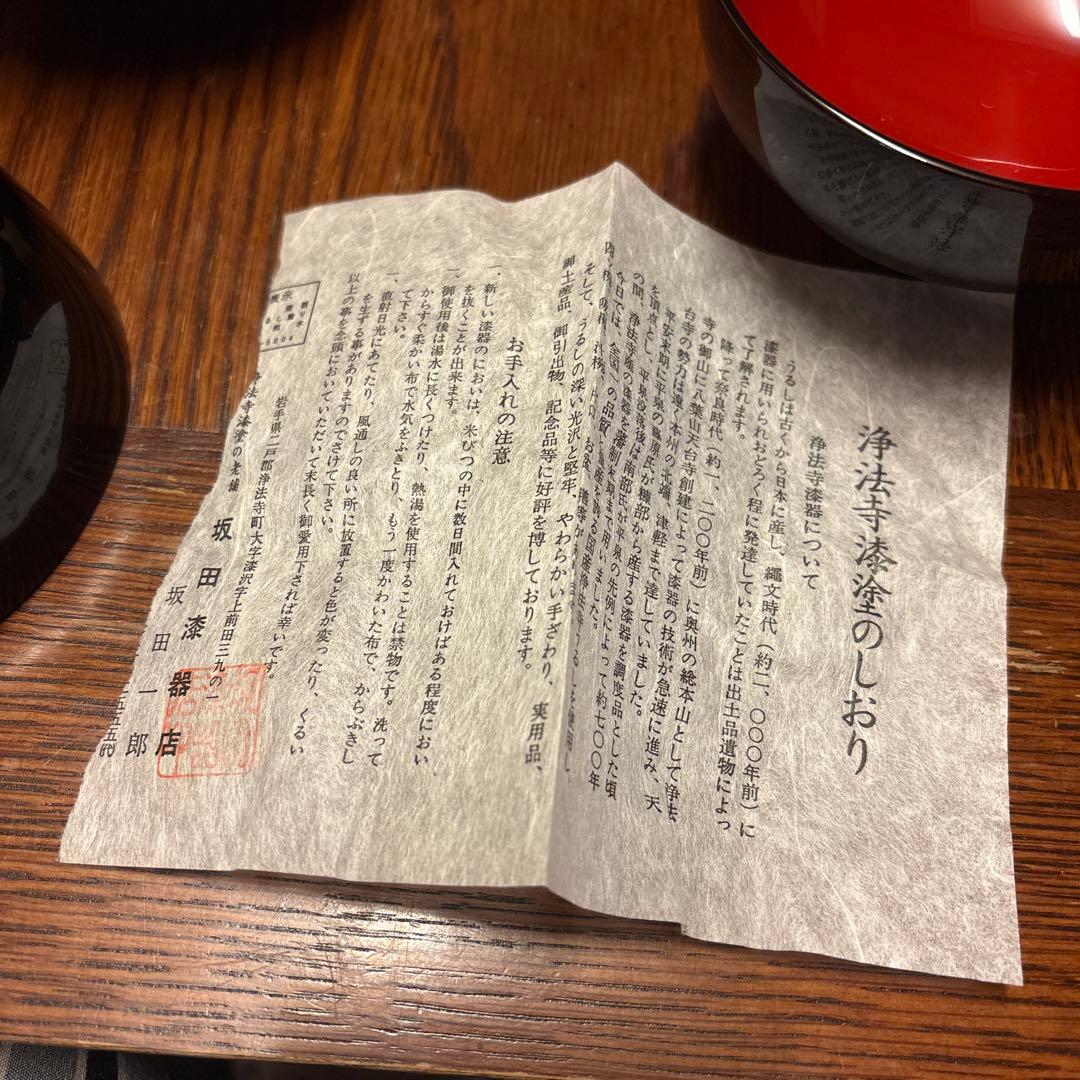 浄法寺漆塗のしおり
浄法寺漆器について
うるしは古くから日本に産し、縄文時代(約二、〇〇〇年前)に
漆器に用いられおどろく程に発達していたことは出土品遺物によっ
て了解されます。
降って奈良時代(約一、二〇〇年前)に奥州の総本山として浄法
寺の御山に八葉山天台寺創建によって漆器の技術が急速に進み、天
台寺の勢力は遠く本州の北端、津軽まで達していました。
平安末期に平泉の藤原氏が機部から産する漆器を調度品とした頃
を頂点とし、平泉没落後は南部氏が平泉の先例によって約七〇〇年
の間、浄法寺産の漆器を藩制末期まで用いました。
今日では、全国一の品質
そして、うるしの深い光沢と堅牢、やわらかい手ざわり、実用品、
御土産品、御引出物、記念品等に好評を博しております。
お手入れの注意
一、新しい漆器のにおいは、米びつの中に数日間入れておけばある程度におい
を抜くことが出来ます。
一、御使用後は湯水に長くつけたり、熱湯を使用することは禁物です。洗って
からすぐ柔かい布で水気をふきとり、もう一度かわいた布で、からぶきし
て下さい。
一、直射日光にあてたり、風通しの良い所に放置すると色が変ったり、くるい
を生ずる事がありますのでさけて下さい。
以上の事を念頭においていただいて末長く御愛用下されば幸いです。
表示
岩手県二戸郡浄法寺町大字漆沢字上前田三九の一
浄法寺漆堂の老舗
坂田漆器店
坂田一郎